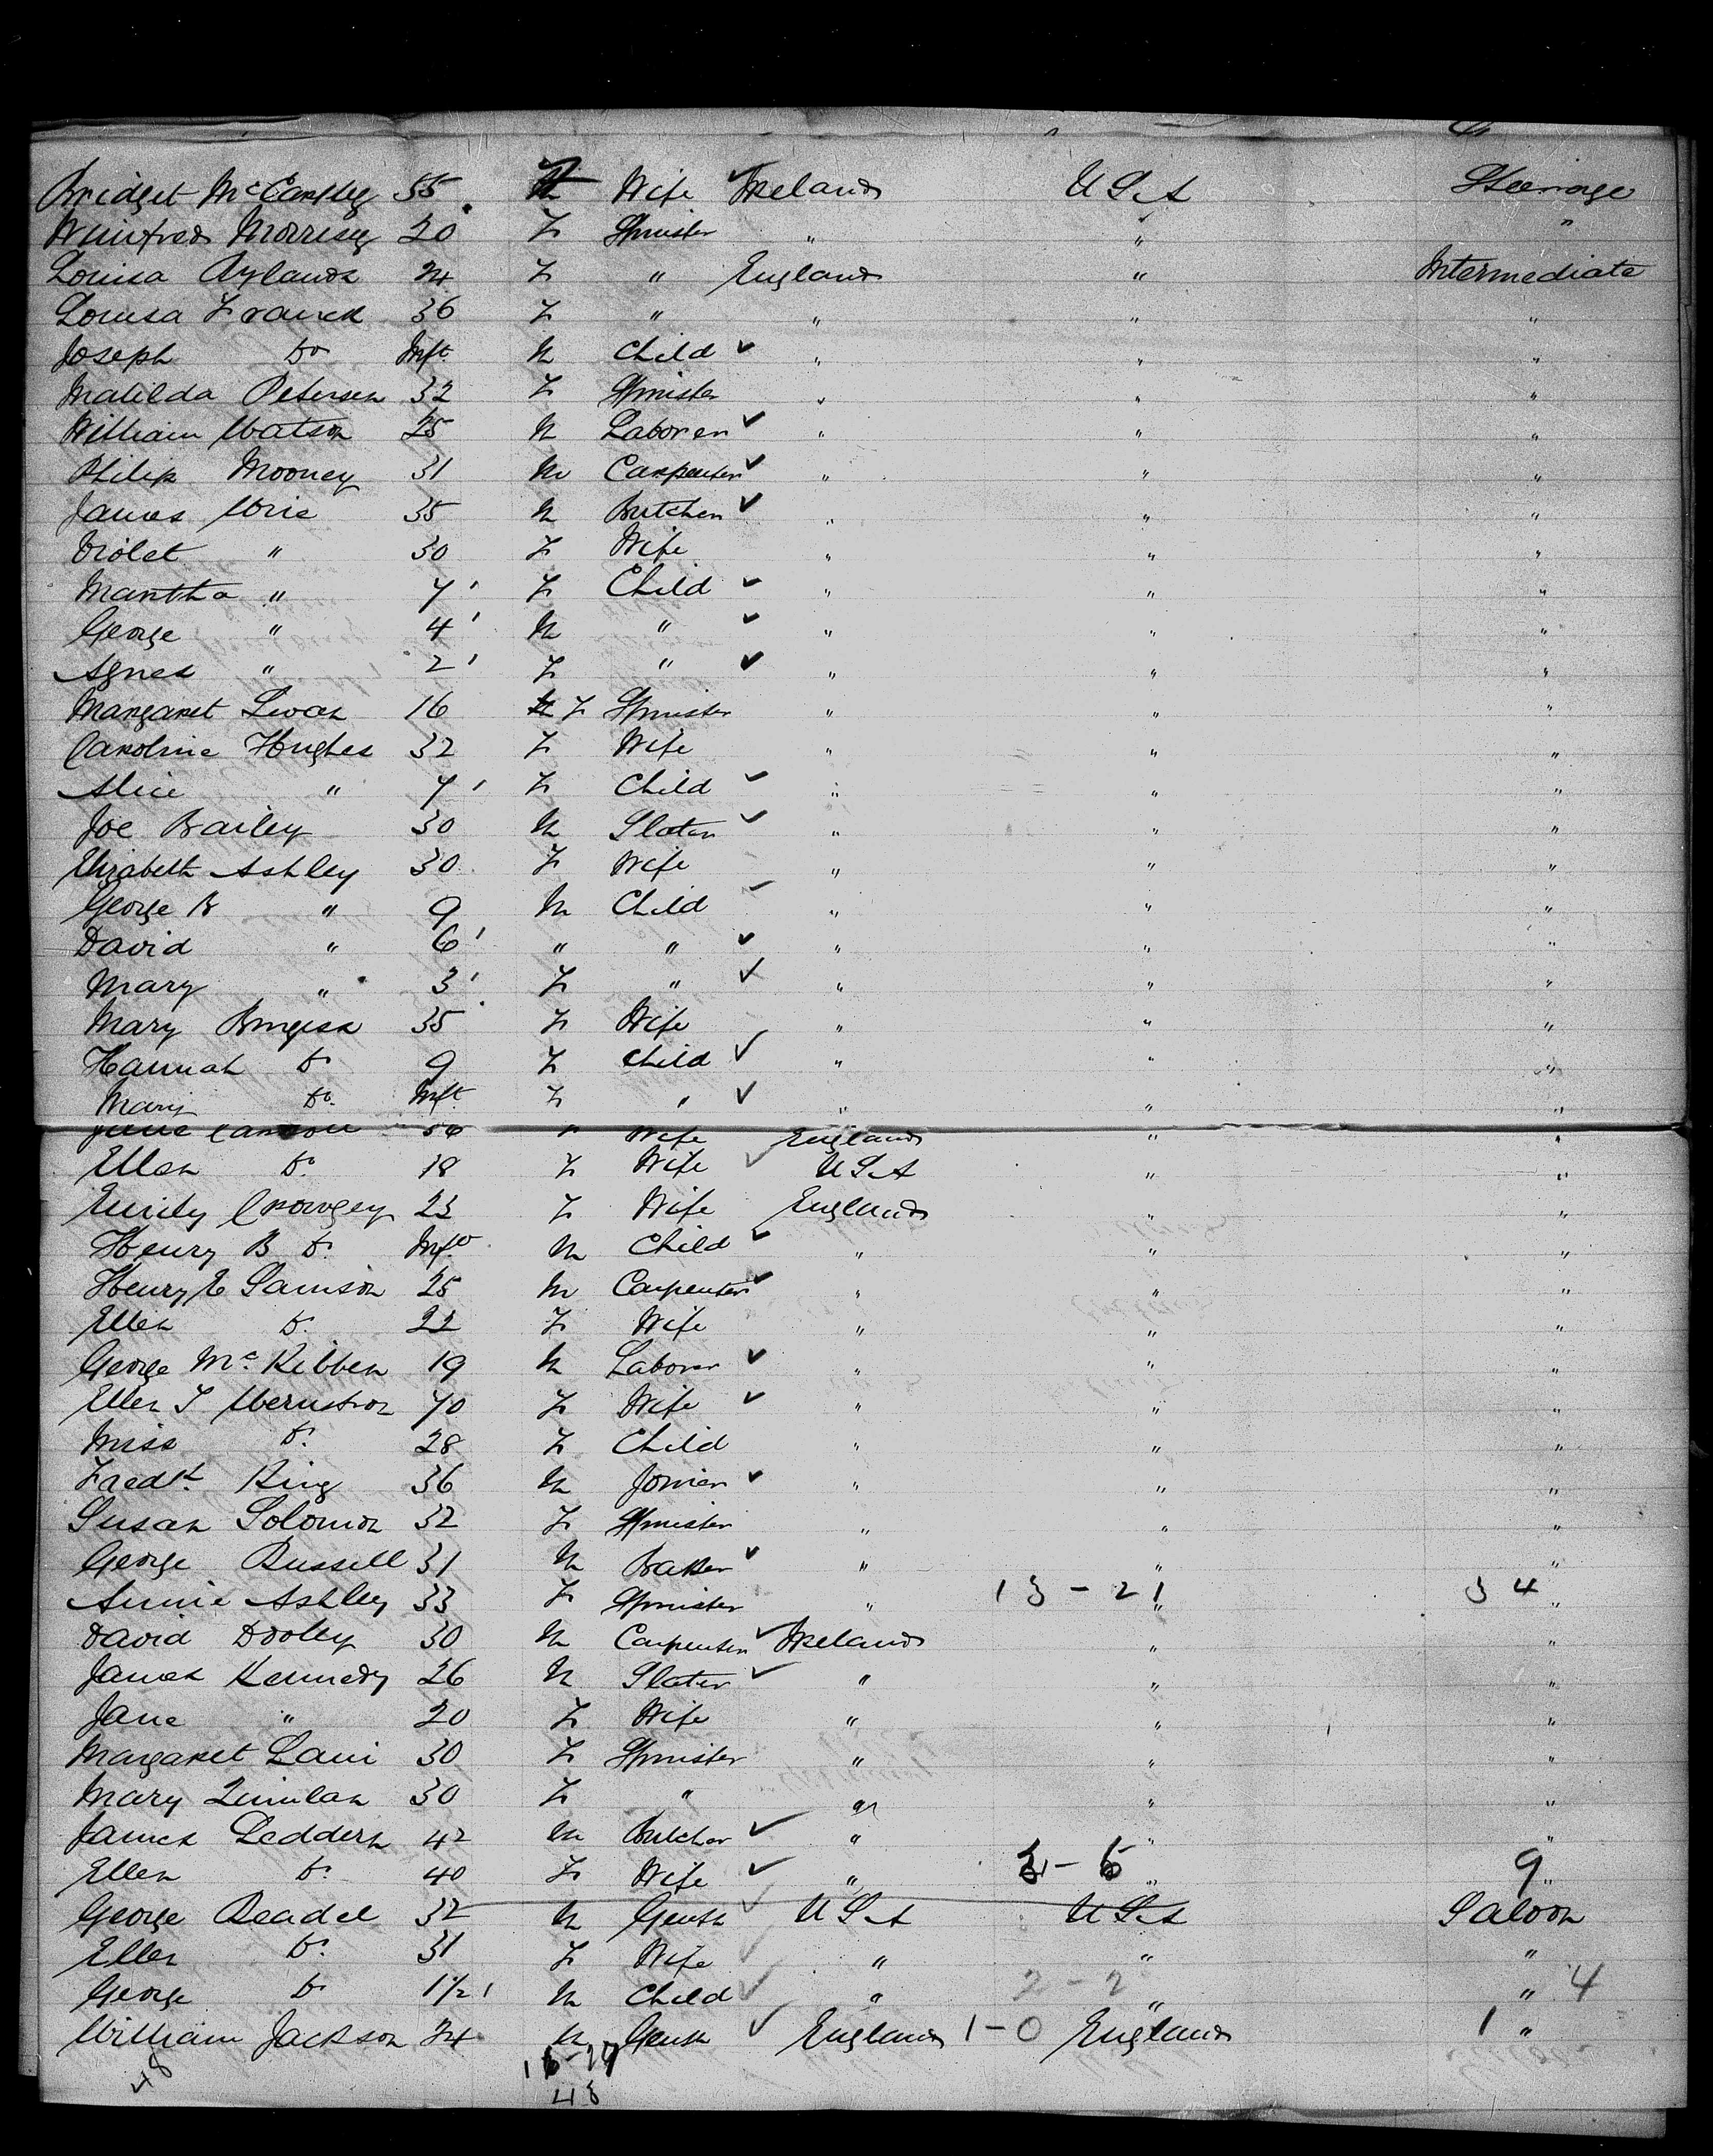 Bridget McCarthy 55 F Wife Ireland USA Steerage
Winifred Morrisey 20 F Spinster " " "
Louisa Rylands 24 F " England " Intermediate
Louisa Franck 36 F " " " "
Joseph Do Inft. M Child ✓ " " "
Matilda Petersen 32 F Spinster " " "
William Watson 25 M Laborer ✓ " " "
Philip Mooney 31 M Carpenter ✓ " " "
James Urie 35 M Butcher ✓ " " "
Violet " 30 F Wife " " "
Martha " 7 F Child ✓ " " "
George " 4 M " ✓ " " "
Agnes " 2 F " ✓ " " "
Margaret Swan 16 F Spinster " " "
Caroline Hughes 32 F Wife " " "
Alice " 7 F Child ✓ " " "
Joe Bailey 30 M Slater ✓ " " "
Elizabeth Ashley 30 F Wife " " "
George B " 9 M Child ✓ " " "
David " 6 " " ✓ " " "
Mary " 3 F " ✓ " " "
Mary Burgess 35 F Wife " " "
Hannah Do 9 F Child ✓ " " "
Mary Do. Inft. F " ✓ " " "
Wife England " "
Ellen Do 18 F Wife ✓ USA " "
Emily Crowgey 23 F Wife England " "
Henry B Do. Inft. M Child ✓ " " "
Henry E Samson 25 M Carpenter ✓ " " "
Ellen Do. 22 F Wife " " "
George McKibben 19 M Laborer ✓ " " "
Ellen 70 F Wife ✓ " " "
Miss Do. 28 F Child " " "
Fredk. King 36 M Joiner ✓ " " "
Susan Solomon 32 F Spinster " " "
George Russell 31 M Baker ✓ " " "
Annie Ashley 33 F Spinster " 13 - 21 " 34 "
David Dooley 30 M Carpenter ✓ Ireland " "
James Kennedy 26 M Slater ✓ " " "
Jane " 20 F Wife " " "
Margaret Lani 30 F Spinster " " "
Mary Quinlan 30 F " " " "
James Leddern 42 M Butcher ✓ " " "
Ellen Do. 40 F Wife ✓ " 3 - 6 " 9 "
George Beadel 32 M Gentn ✓ USA USA Saloon
Ellen Do. 31 F Wife ✓ " " "
George Do 1 1/2 M Child ✓ " 2 - 2 " " 4
William Jackson 24 M Gentn ✓ England 1 - 0 England 1 "
48
48